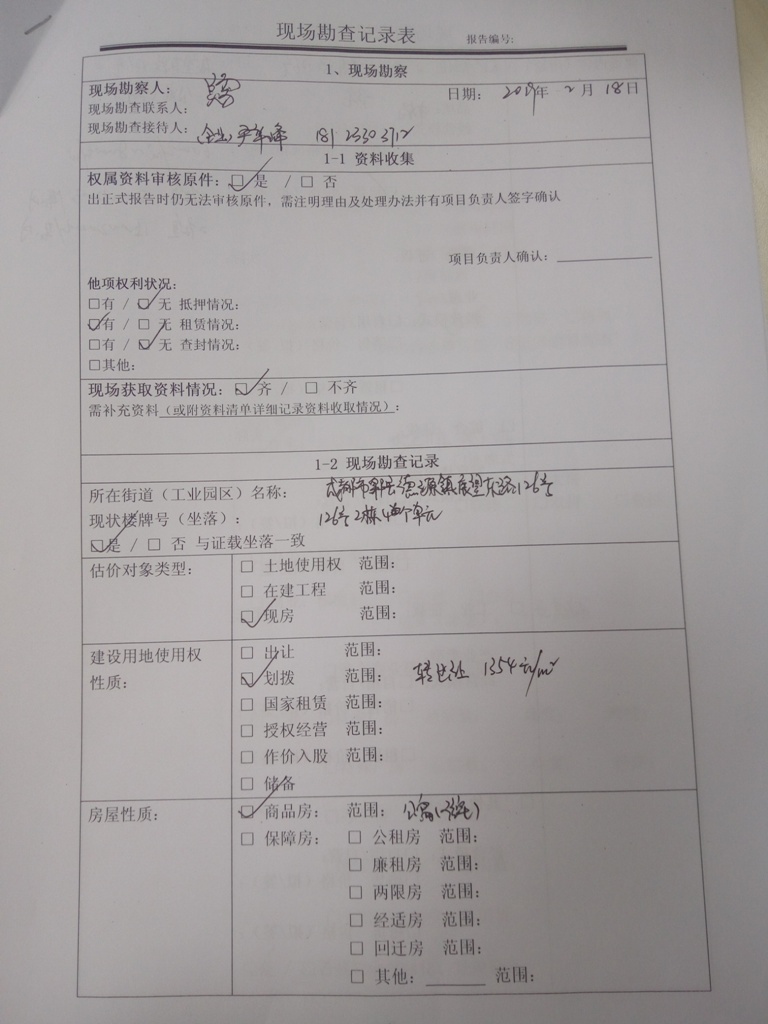 现场勘查记录表 报告编号:
1、现场勘察
现场勘察人: 日期: 2019年 2月 18日
现场勘查联系人:
现场勘查接待人:
1-1 资料收集
权属资料审核原件: ☑ 是 / □ 否
出正式报告时仍无法审核原件, 需注明理由及处理办法并有项目负责人签字确认
项目负责人确认:
他项权利状况:
□有 / ☑ 无 抵押情况:
☑有 / □ 无 租赁情况:
□有 / ☑ 无 查封情况:
□其他:
现场获取资料情况: ☑ 齐 / □ 不齐
需补充资料(或附资料清单详细记录资料收取情况):
1-2 现场勘查记录
所在街道(工业园区)名称: 成都市郫县德源镇展望东路126号
现状楼牌号(坐落): 126号2栋 单元
☑是 / □ 否 与证载坐落一致
估价对象类型: □ 土地使用权 范围:
□ 在建工程 范围:
☑ 现房 范围:
建设用地使用权性质: □ 出让 范围:
☑ 划拨 范围: 转出让 1354元/m²
□ 国家租赁 范围:
□ 授权经营 范围:
□ 作价入股 范围:
□ 储备
房屋性质: ☑ 商品房: 范围:
□ 保障房: □ 公租房 范围:
□ 廉租房 范围:
□ 两限房 范围:
□ 经适房 范围:
□ 回迁房 范围:
□ 其他: 范围: